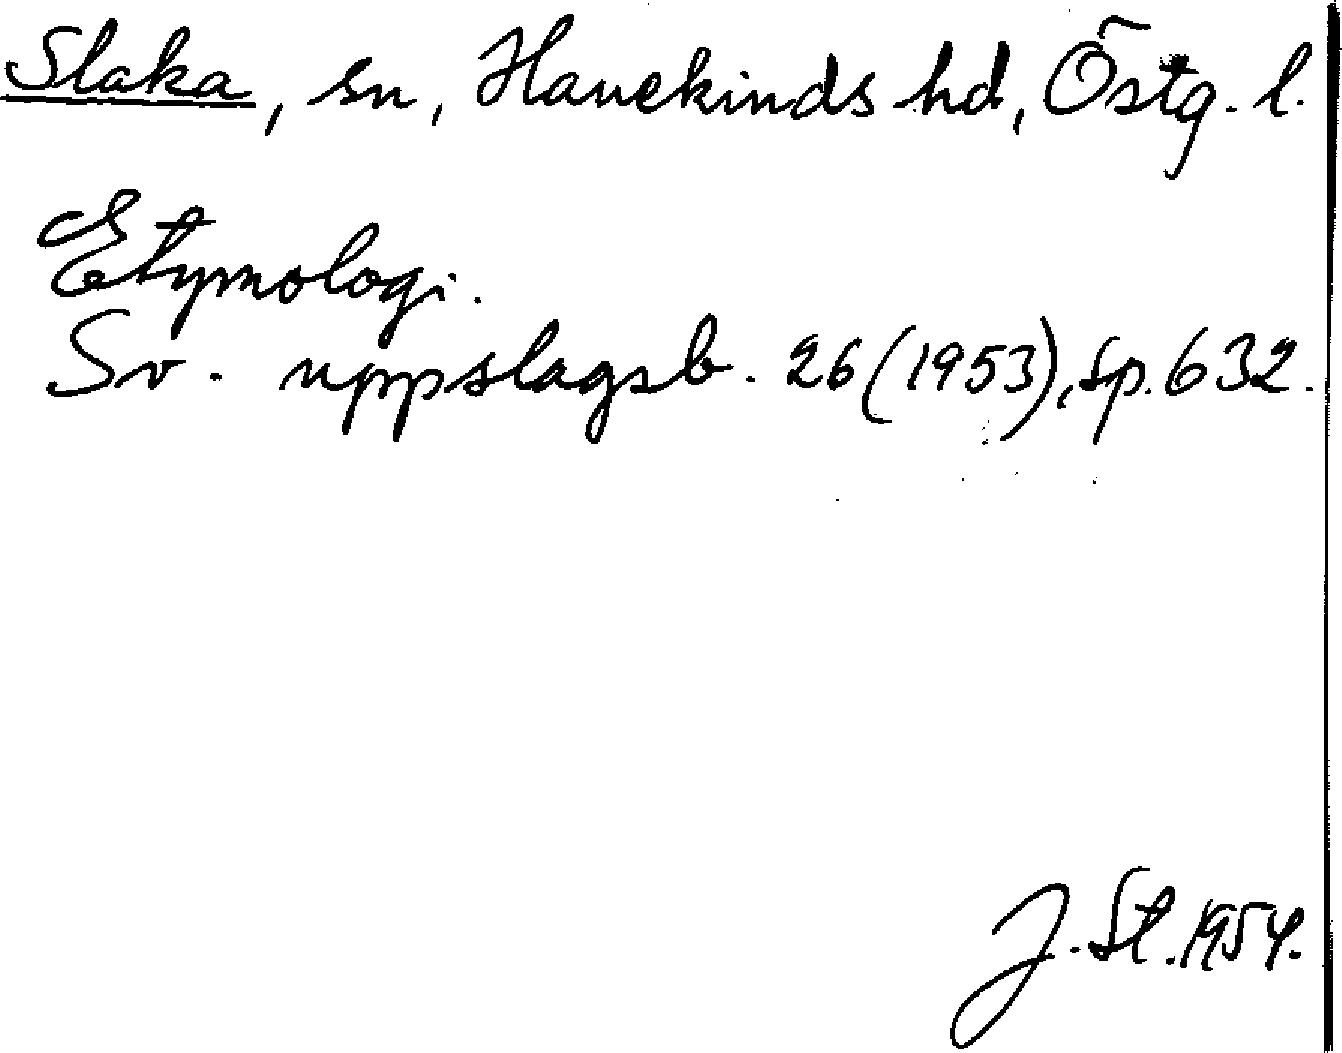 Slaka, sn, Hanekinds hd, Östg. l.
Etymologi.
Sv. uppslagsb. 26 (1953), sp. 632.
J. St. 1954.